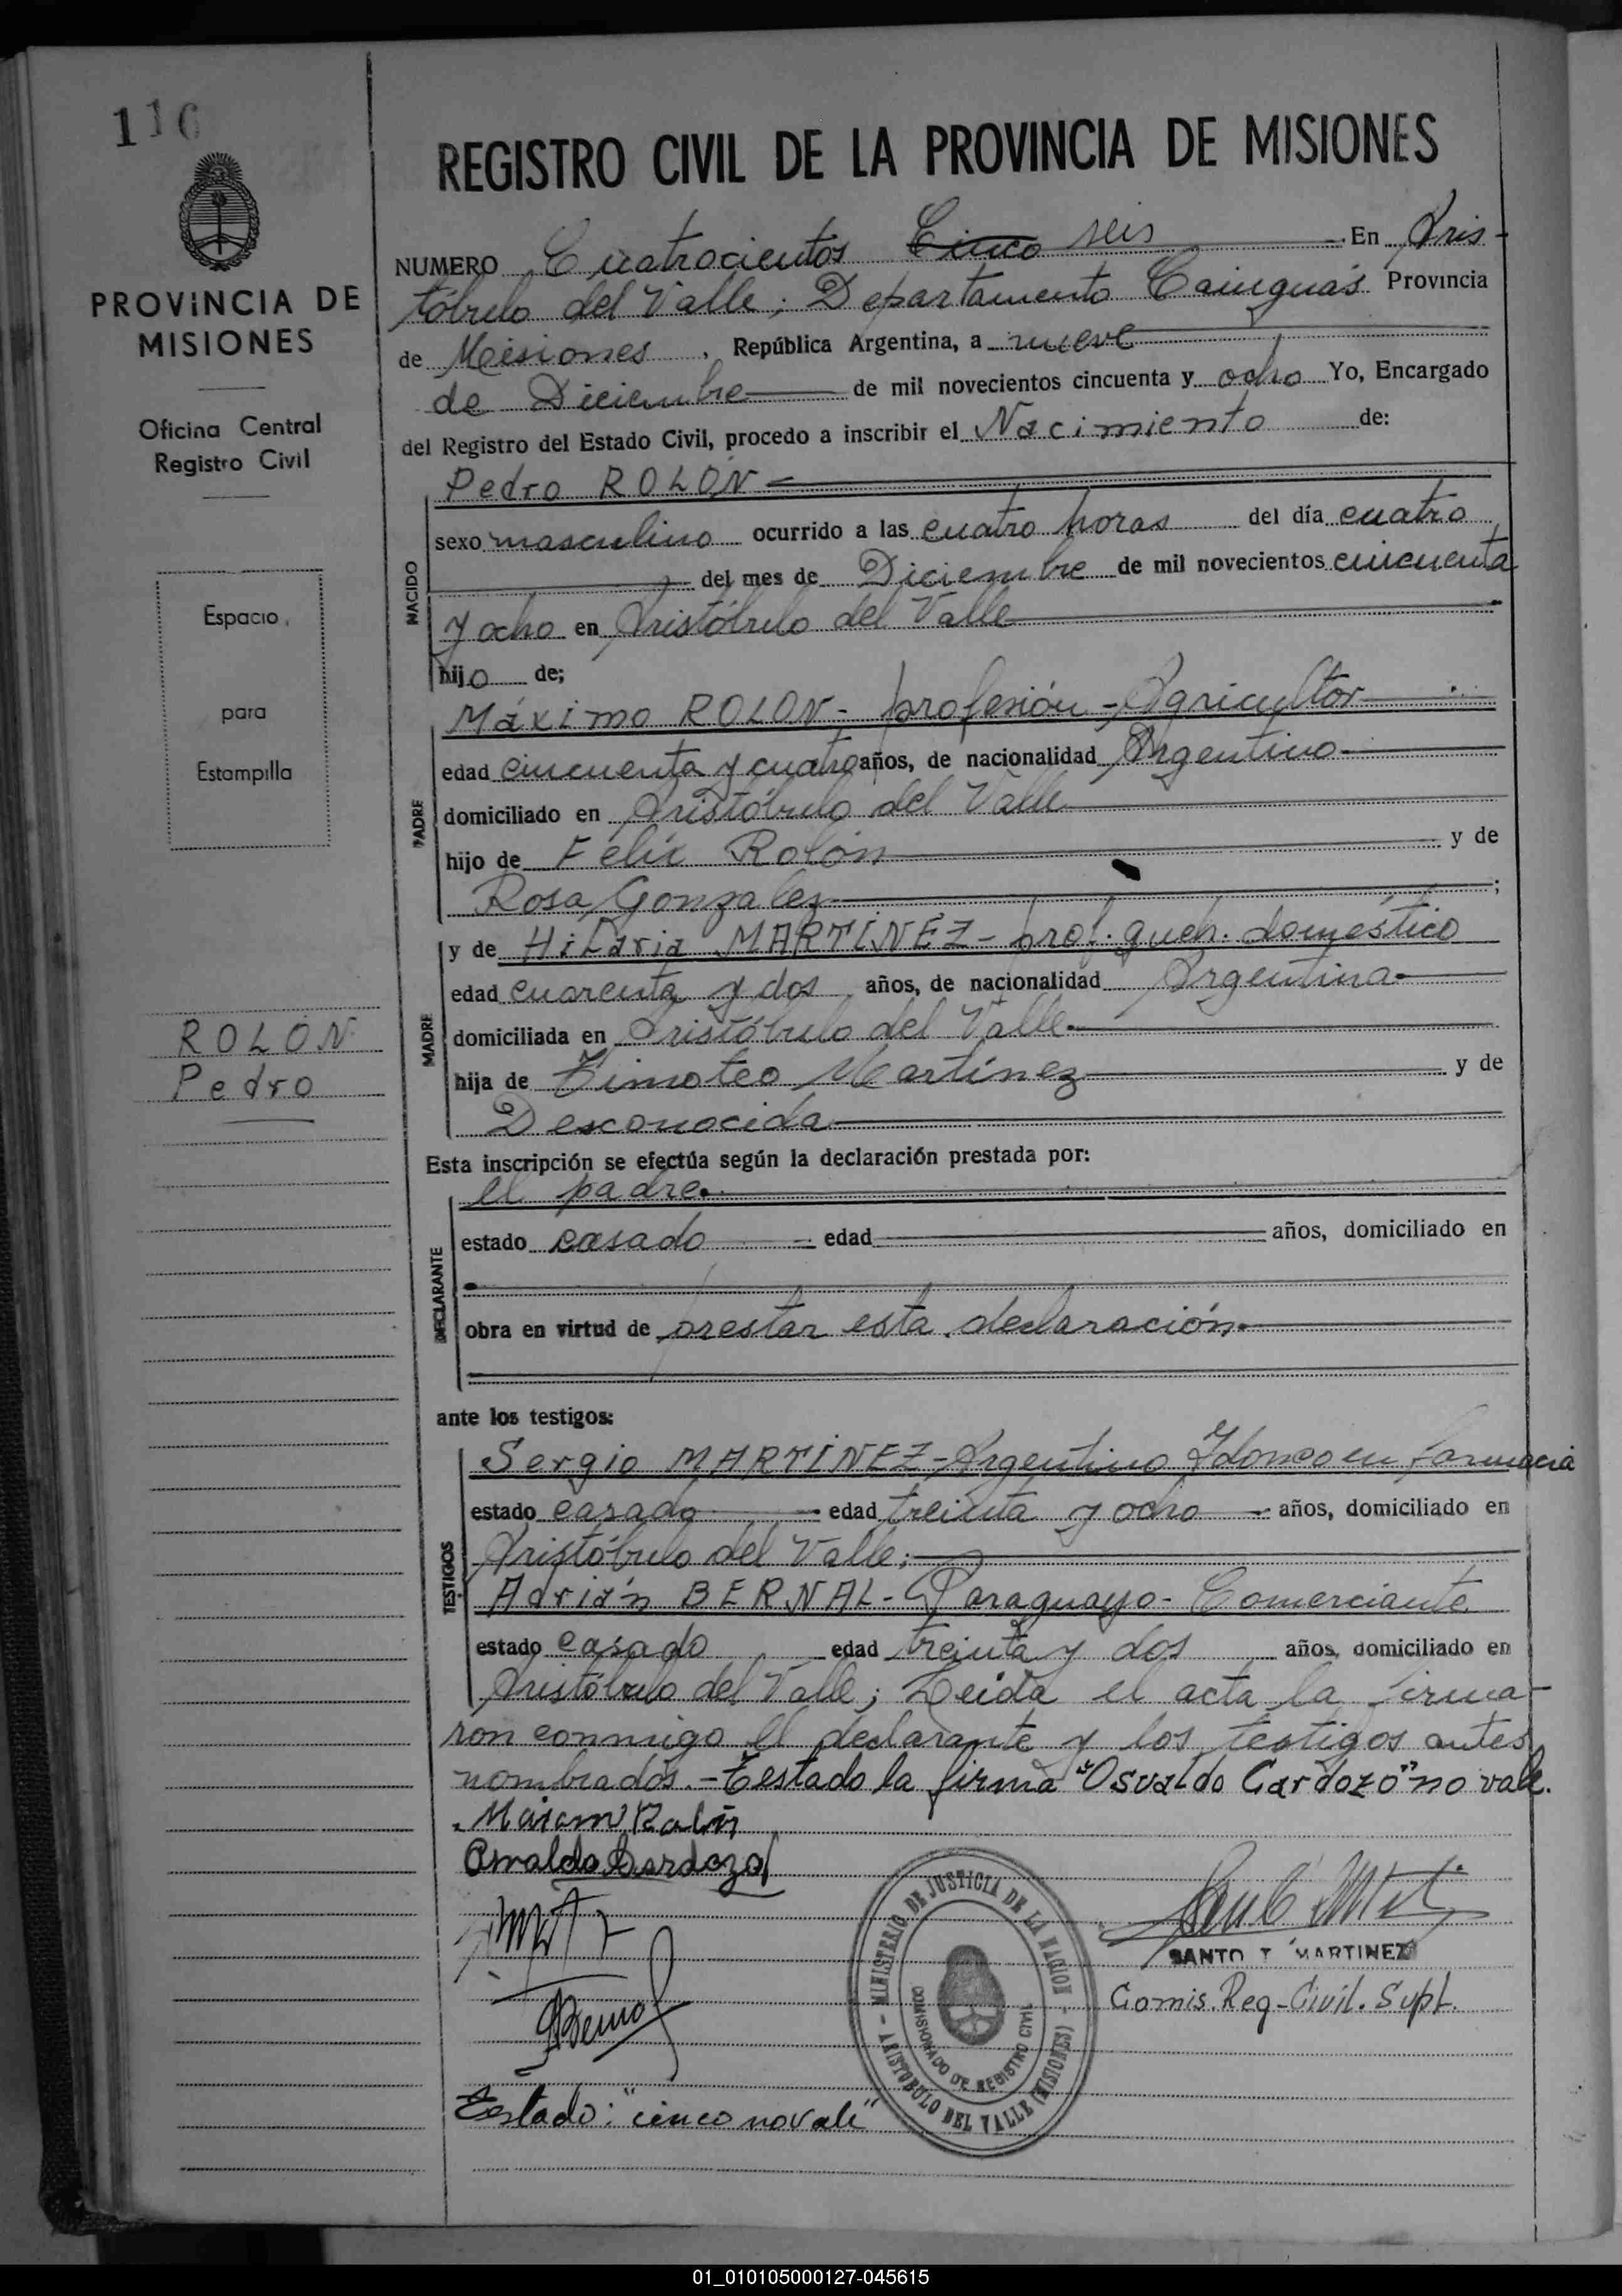 116
PROVINCIA DE
MISIONES
Oficina Central
Registro Civil
Espacio
para
Estampilla
ROLON
Pedro
REGISTRO CIVIL DE LA PROVINCIA DE MISIONES
NUMERO Cuatrocientos Cinco seis En Aris-
tóbulo del Valle; Departamento Cainguás Provincia
de Misiones, República Argentina, a nueve
de Diciembre de mil novecientos cincuenta y ocho Yo, Encargado
del Registro del Estado Civil, procedo a inscribir el Nacimiento de:
NACIDO
Pedro ROLON
sexo masculino ocurrido a las cuatro horas del día cuatro
del mes de Diciembre de mil novecientos cincuenta
y ocho en Aristóbulo del Valle
hijo de;
PADRE
Máximo ROLON - profesión - Agricultor
edad cincuenta y cuatro años, de nacionalidad Argentino
domiciliado en Aristóbulo del Valle
hijo de Félix Rolón y de
Rosa Gonzalez ;
MADRE
y de Hilaria MARTÍNEZ - prof. queh. doméstico
edad cuarenta y dos años, de nacionalidad Argentina
domiciliada en Aristóbulo del Valle
hija de Timoteo Martínez y de
Desconocida
Esta inscripción se efectúa según la declaración prestada por:
DECLARANTE
el padre.
estado casado edad años, domiciliado en
obra en virtud de prestar esta declaración.
ante los testigos:
TESTIGOS
Sergio MARTÍNEZ - Argentino Idoneo en farmacia
estado casado edad treinta y ocho años, domiciliado en
Aristóbulo del Valle;
Adrián BERNAL - Paraguayo - Comerciante
estado casado edad treinta y dos años, domiciliado en
Aristóbulo del Valle; Leída el acta la firma-
ron conmigo el declarante y los testigos antes
nombrados. - Testado la firma "Osvaldo Cardozo" no vale.
Osvaldo Cardozo
MINISTERIO DE JUSTICIA DE LA NACION
COMISIONADO DE REGISTRO CIVIL
ARISTOBULO DEL VALLE (MISIONES)
SANTO T MARTINEZ
Comis. Reg-Civil. Supl.
Testado: "cinco no vale"
01_010105000127-045615